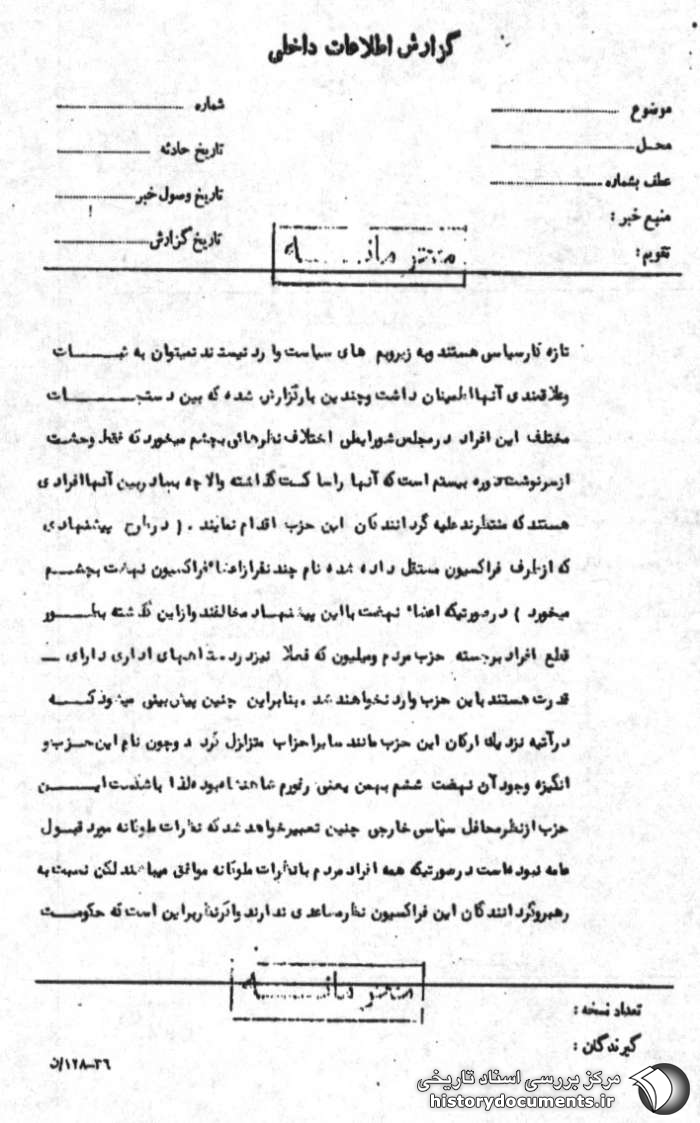 گزارش اطلاعات داخلی
موضوع
محل
عطف بشماره
منبع خبر :
تقویم :
شماره
تاریخ حادثه
تاریخ وصول خبر
تاریخ گزارش
تازه کار سیاسی هستند وبه زیروبم های سیاست وارد نیستند نمیتوان به ثبات
وعلاقمندی آنها اطمینان داشت وچندین بارگزارش شده که بین دستجات
مختلف این افراد در مجلس شورایملی اختلاف نظرهائی بچشم میخورد که فقط وحشت
از سرنوشت دوره بیستم است که آنها را ساکت گذاشته والا چه بسا دربین آنها افرادی
هستند که منتظرند علیه گردانندگان این حزب اقدام نمایند . ( در طرح پیشنهادی
که از طرف فراکسیون مستقل داده شده نام چند نفر از اعضاء فراکسیون نهضت بچشم
میخورد ) در صورتیکه اعضاء نهضت با این پیشنهاد مخالفند واز این گذشته بطور
قطع افراد برجسته حزب مردم وملیون که فعلا نیز در دستگاههای اداری دارای
قدرت هستند باین حزب وارد نخواهند شد . بنابراین چنین پیش بینی میشود که
در آتیه نزدیک ارکان این حزب مانند سایر احزاب متزلزل گردد وچون نام این حزب و
انگیزه وجود آن نهضت ششم بهمن یعنی رفورم شاهنشاه بوده لذا باشکست این
حزب از نظر محافل سیاسی خارجی چنین تعبیر خواهد شد که نظرات ملوکانه مورد قبول
عامه نبوده است در صورتیکه همه افراد مردم با نظرات ملوکانه موافق میباشند لکن نسبت به
رهبر وگردانندگان این فراکسیون نظر مساعدی ندارند واگر نظر براین است که حکومت
تعداد نسخه :
گیرندگان :
۳۶–۱۲۸/ن
مرکز بررسی اسناد تاریخی
historydocuments.ir